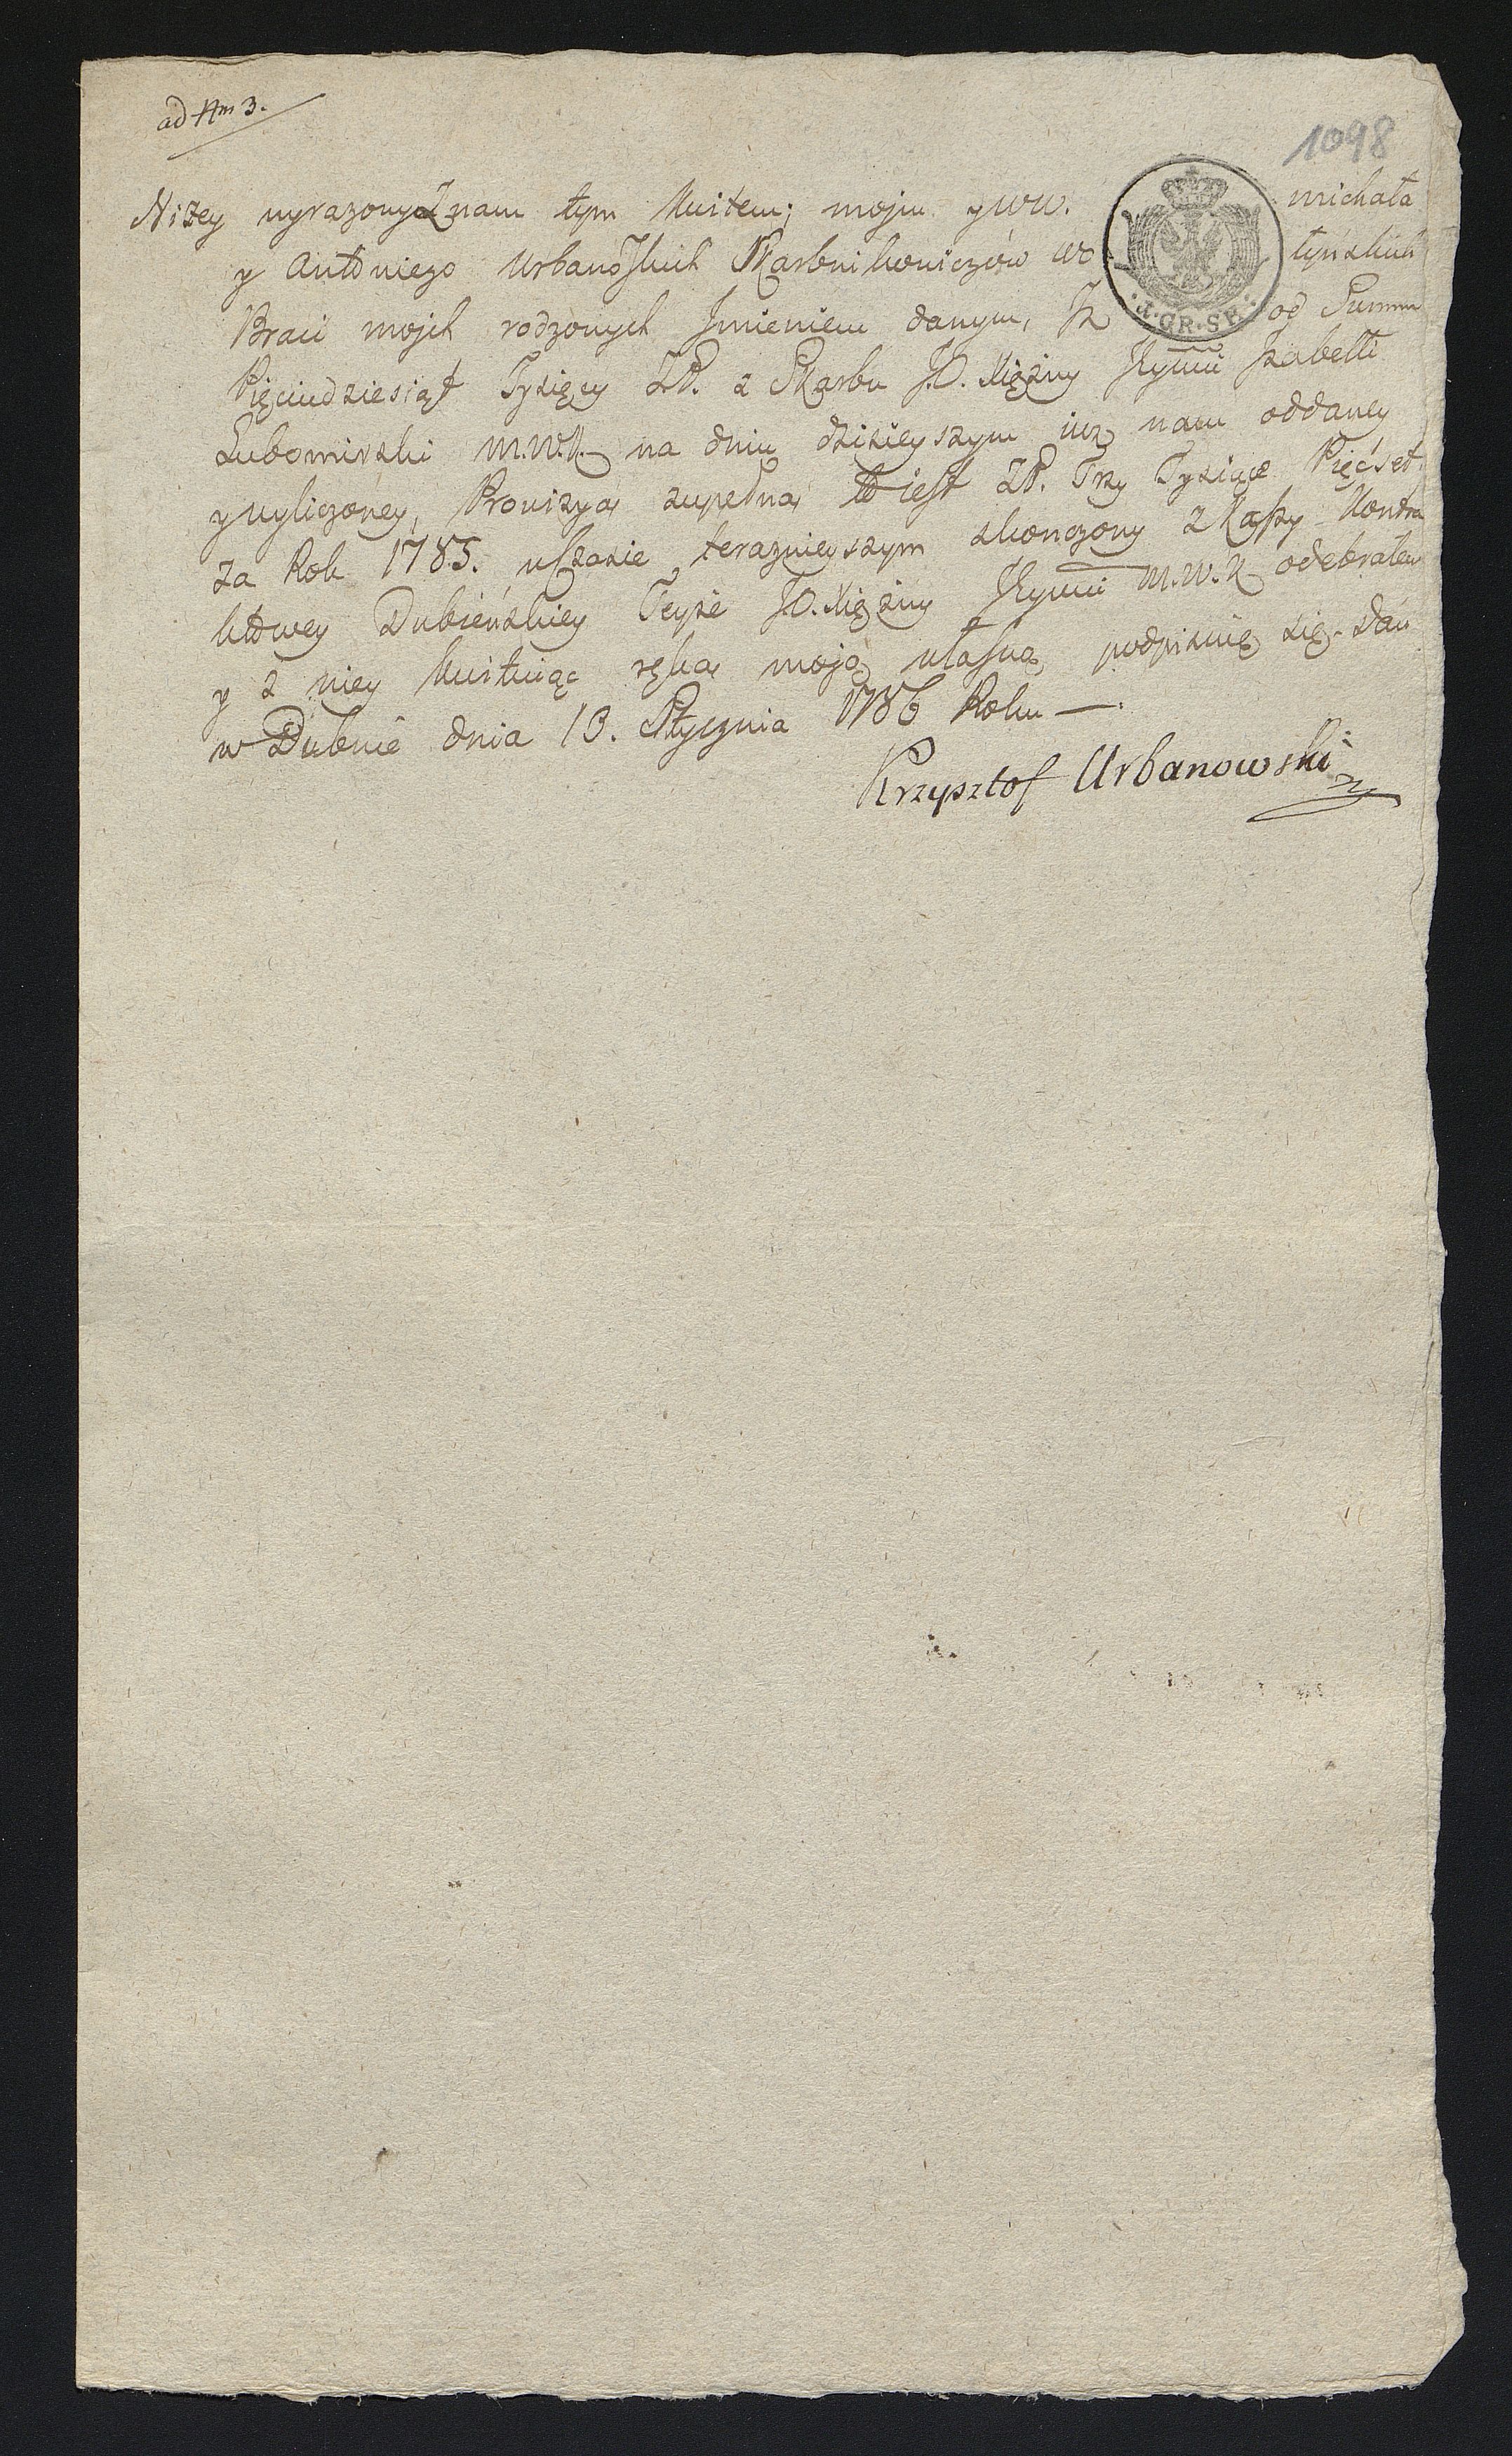 ad Nm 3.
1098
Niżey wyrazony Znam tym Kwitem; mojm y WW. michała
y Antoniego Urbanoskich Skarbnikowiczów wo łyńskich
Braci mojch rodzonych Jmieniem danym, Jż od Summ
Pięciudziesiąt Tysięcy ZP. z Skarbu J.O. Xiężny Jzabelli
Lubomirski M.W.K. na dniu dzisieyszym iuż nam oddaney
y wyliczoney, Prowizyą zupełną to iest ZP. Trzy Tysiące Pięćset.
za Rok 1785. w czasie teraznieyszym skonczony z Kassy Kontra
ktowey Dubieńskiey Teyże J.O. Xiężny M.W.K odebrałem
y z niey Kwituiąc ręką moją własną podpisuię się. Dan
w Dubnie dnia 13. Stycznia 1786 Roku —.
Krzysztof Urbanowski
4.GR.SR.